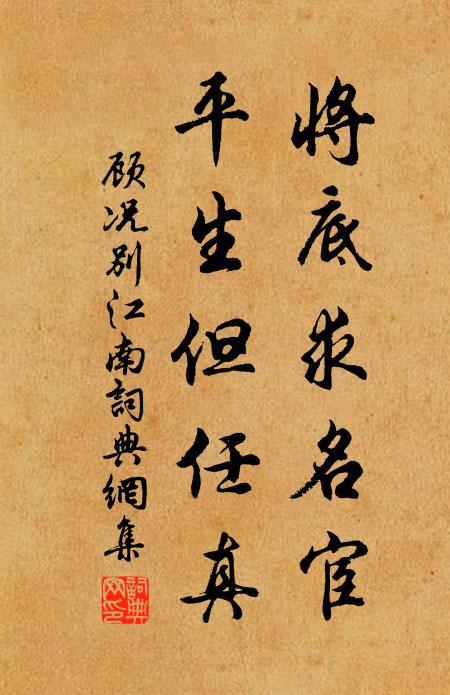 將底求名宦
平生但任真
顾况别江南詞典網集
詞典
网印